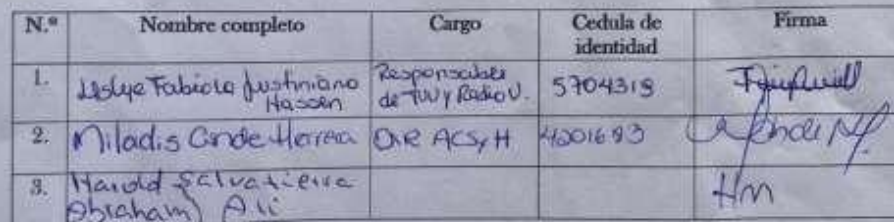 N.º Nombre completo Cargo Cedula de identidad Firma
1. Leslye Fabiola Justiniano Hassen Responsable de TVU y Radio U. 5704318
2. Miladis Conde Herrera Dir ACS y H 4201683
3. Harold Salvatierra
Abraham Ali HM